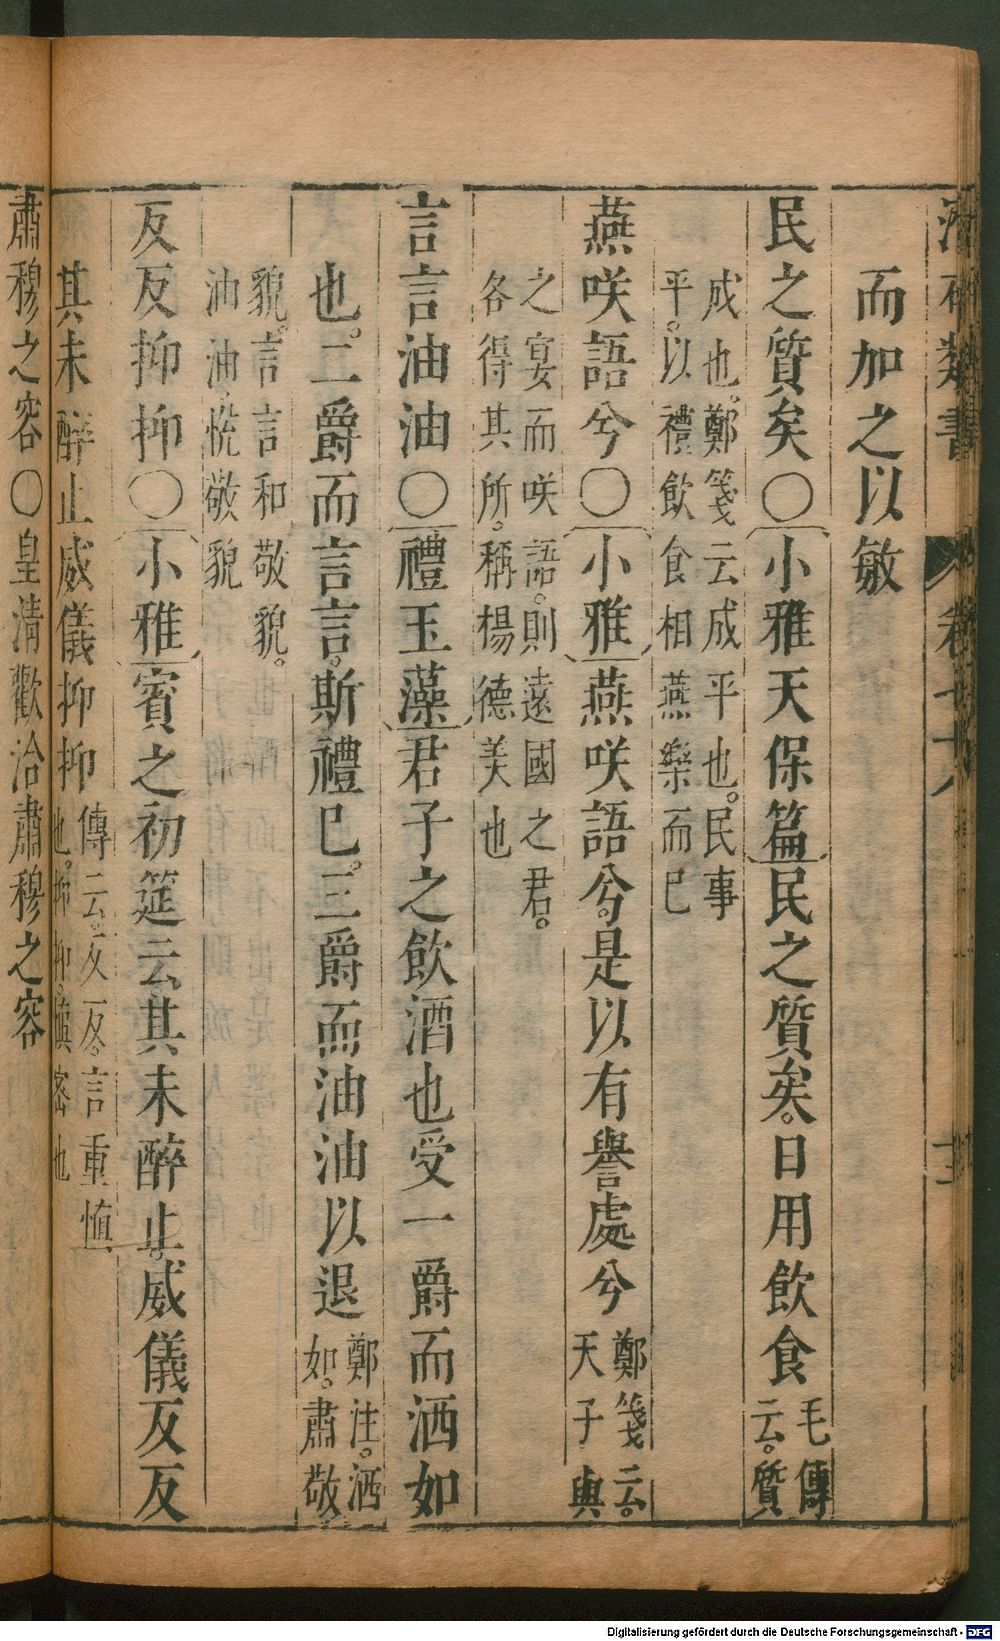 而加之以敏
民之質矣〇小雅天保篇民之質矣。日用飲食毛傳云。質
成也。鄭箋云成平也。民事平。以禮飲食相燕樂而已
燕咲語兮〇小雅燕咲語兮。是以有譽處兮鄭箋云。天子與
之宴而咲語。則遠國之君。各得其所。稱揚德美也
言言油油〇禮玉藻君子之飲酒也受一爵而洒如
也。二爵而言言。斯禮已。三爵而油油以退鄭注。洒如。肅敬
貌。言言和敬貌。油油。悅敬貌
反反抑抑〇小雅賓之初筵云。其未醉止。威儀反反
其未醉止威儀抑抑傳云。反反。言重慎也。抑抑。慎密也
肅穆之容〇皇清歡洽肅穆之容
Digitalisierung gefördert durch die Deutsche Forschungsgemeinschaft - DFG